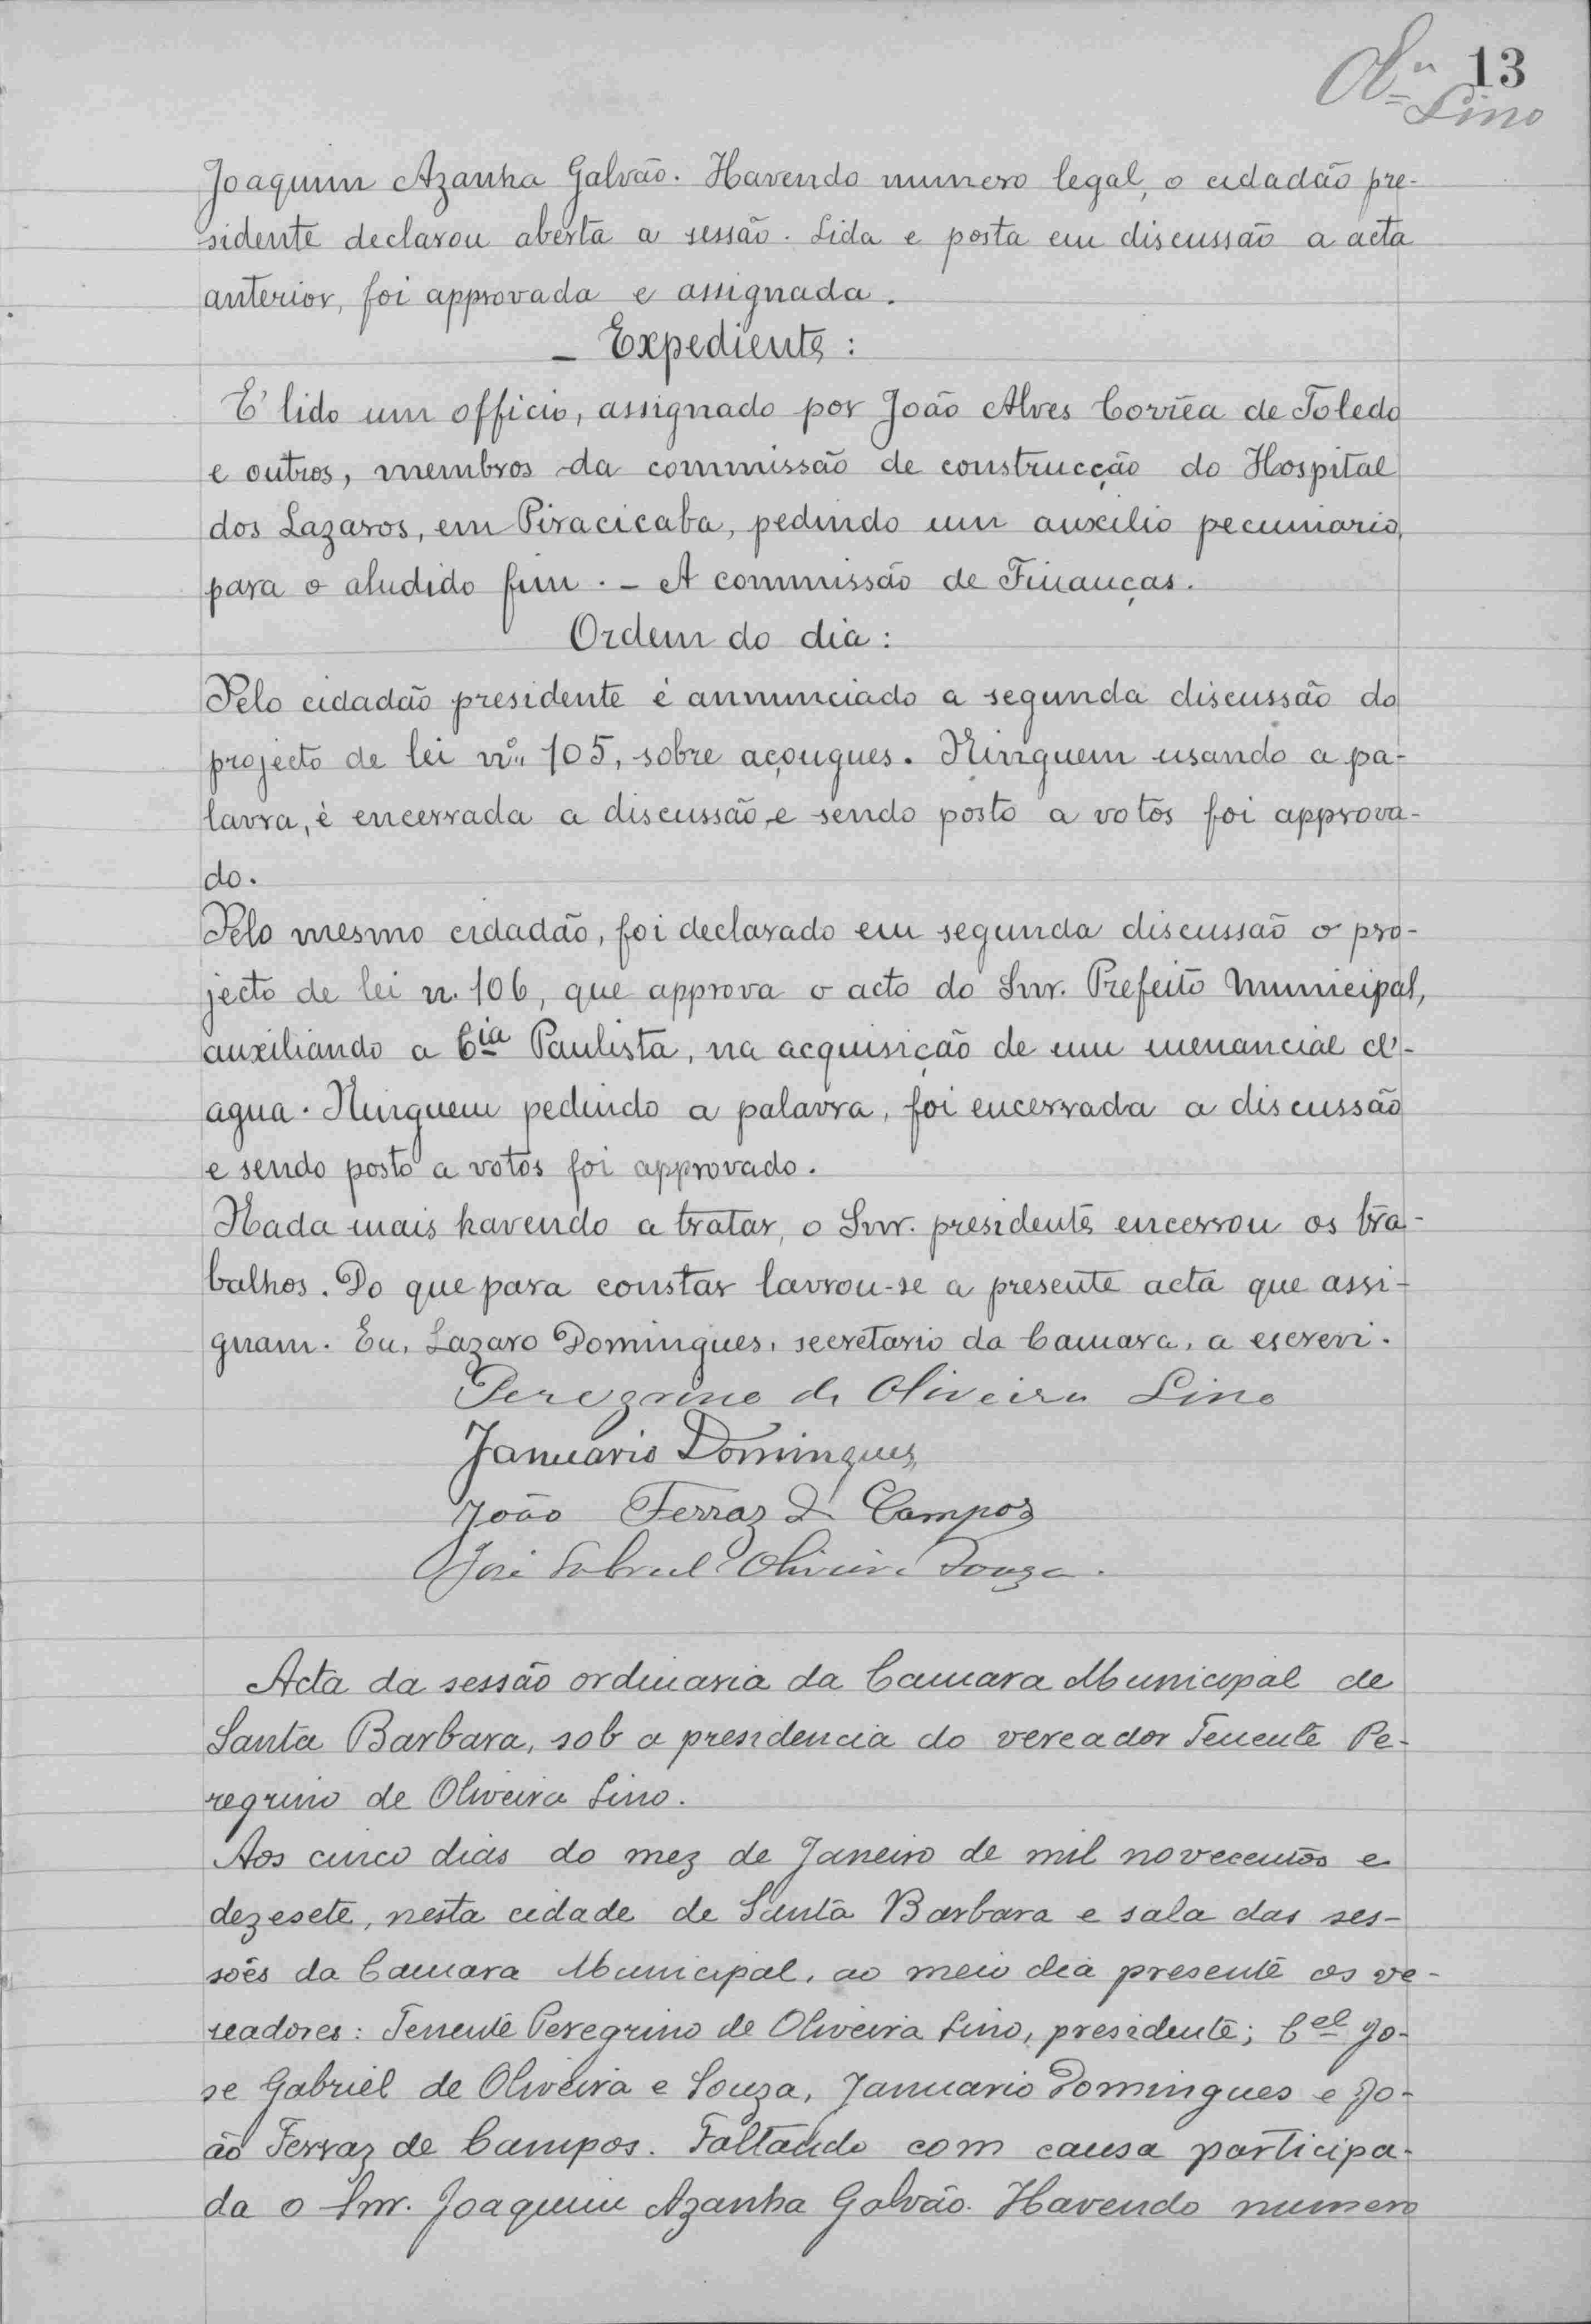 13
Olª Lino
Joaquim Azanha Galvão. Havendo numero legal, o cidadão pre-
sidente declarou aberta a sessão. Lida e posta em discussão a acta
anterior, foi approvada e assignada.
- Expediente:
E' lido um officio, assignado por João Alves Corrêa de Toledo
e outros, membros da commissão de construcção do Hospital
dos Lazaros, em Piracicaba, pedindo um auxilio pecuniario,
para o aludido fim. - A commissão de Finanças.
Ordem do dia:
Pelo cidadão presidente é annunciado a segunda discussão do
projecto de lei nº 105, sobre açougues. Ninguem usando a pa-
lavra, é encerrada a discussão e sendo posto a votos foi approva-
do.
Pelo mesmo cidadão, foi declarado em segunda discussão o pro-
jecto de lei n. 106, que approva o acto do Snr. Prefeito Municipal,
auxiliando a Cia Paulista, na acquisição de um menancial d'-
agua. Ninguem pedindo a palavra, foi encerrada a discussão
e sendo posto a votos foi approvado.
Nada mais havendo a tratar, o Snr. presidente encerrou os tra-
balhos. Do que para constar lavrou-se a presente acta que assi-
gnam. Eu, Lazaro Domingues, secretario da Camara, a escrevi.
Peregrino de Oliveira Lino
Januario Domingues
João Ferraz de Campos
José Gabriel Oliveira Souza.
Acta da sessão ordinaria da Camara Municipal de
Santa Barbara, sob a presidencia do vereador Tenente Pe-
regrino de Oliveira Lino.
Aos cinco dias do mez de Janeiro de mil novecentos e
dezesete, nesta cidade de Santa Barbara e sala das ses-
sões da Camara Municipal, ao meio dia presente os ve-
readores: Tenente Peregrino de Oliveira Lino, presidente; Cel Jo-
se Gabriel de Oliveira e Souza, Januario Domingues e Jo-
ão Ferraz de Campos. Faltando com causa participa-
da o Snr. Joaquim Azanha Galvão. Havendo numero